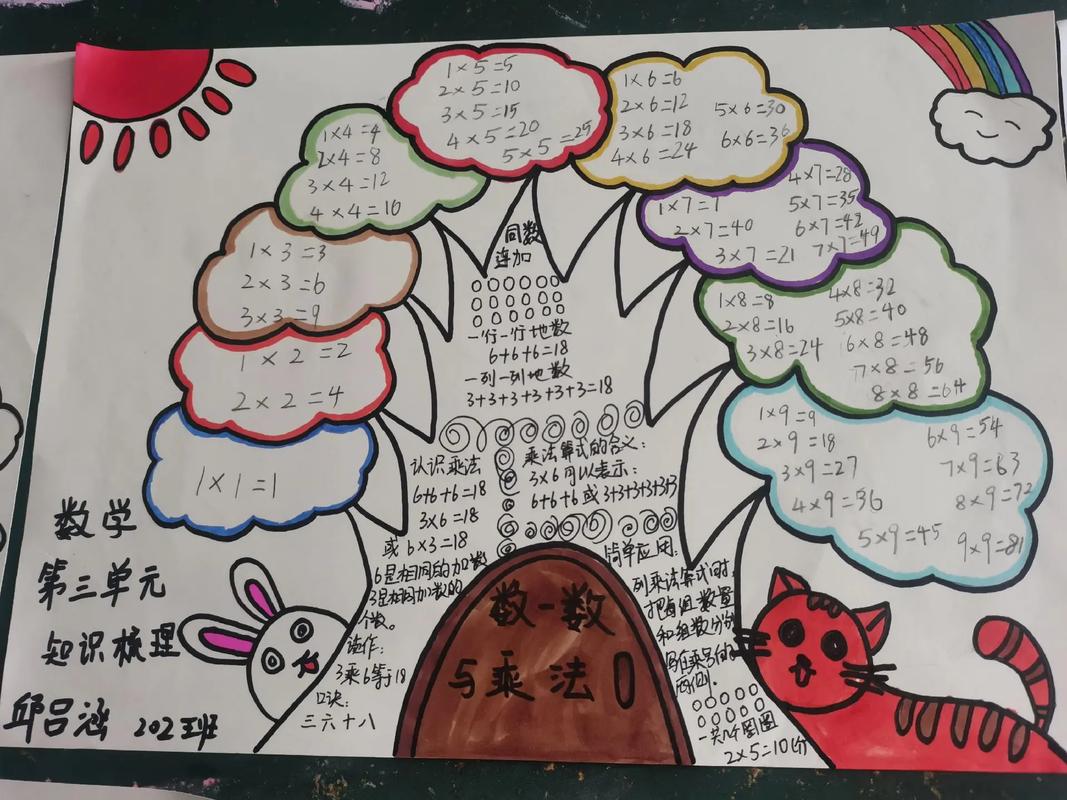 1×5=5
2×5=10
3×5=15
4×5=20
5×5=25
1×6=6
2×6=12
3×6=18
4×6=24
5×6=30
6×6=36
1×4=4
2×4=8
3×4=12
4×4=16
1×7=7
2×7=40
3×7=21
4×7=28
5×7=35
6×7=42
7×7=49
1×3=3
2×3=6
3×3=9
1×8=8
2×8=16
3×8=24
4×8=32
5×8=40
6×8=48
7×8=56
8×8=64
1×2=2
2×2=4
1×9=9
2×9=18
3×9=27
4×9=36
5×9=45
6×9=54
7×9=63
8×9=72
9×9=81
1×1=1
同数
连加
一行一行地数
6+6+6=18
一列一列地数
3+3+3+3+3+3=18
认识乘法
6+6+6=18
3×6=18
或6×3=18
6是相同的加数
3是相同加数的
个数。
读作:
3乘6等于18
口诀:
三六十八
乘法算式的含义:
3×6可以表示:
6+6+6或3+3+3+3+3+3
简单应用:
列乘法算式时,
把每组数量
和组数分别
写在乘号的
两侧.
一共几个圆圈
2×5=10(个)
数一数
与乘法
数学
第三单元
知识梳理
邱吕涵 202班